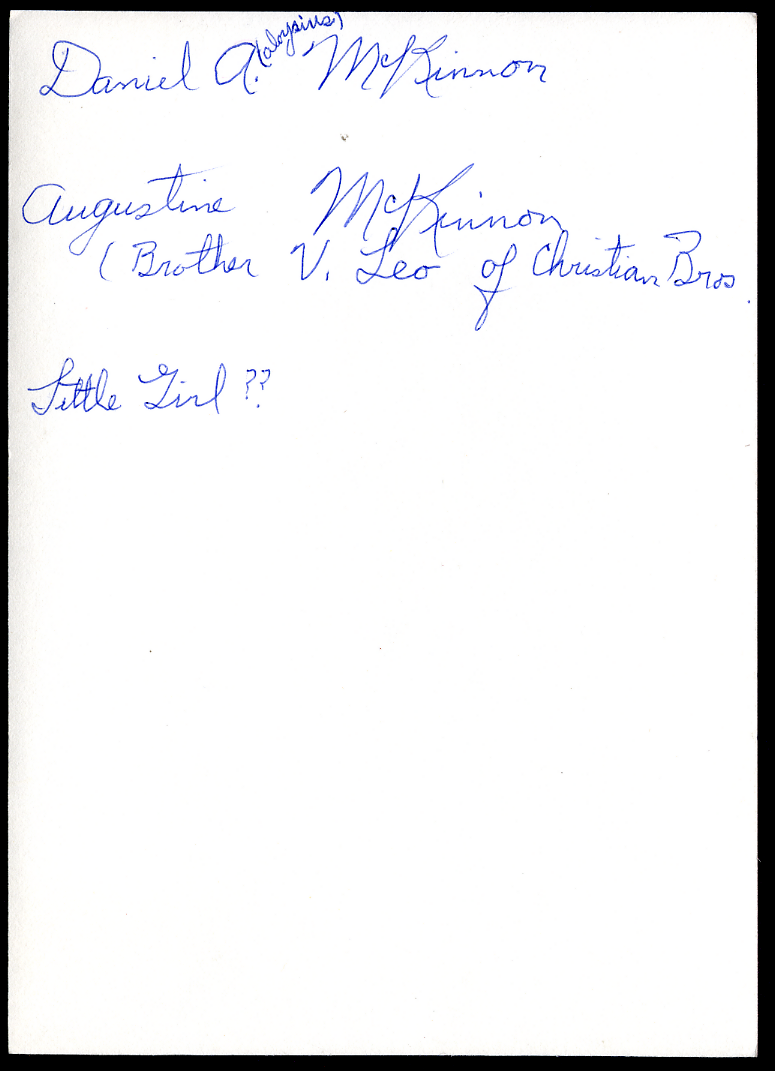 Daniel A. (Aloysius) McKinnon
Augustine McKinnon
( Brother V. Leo of Christian Bros.
Little Girl ??